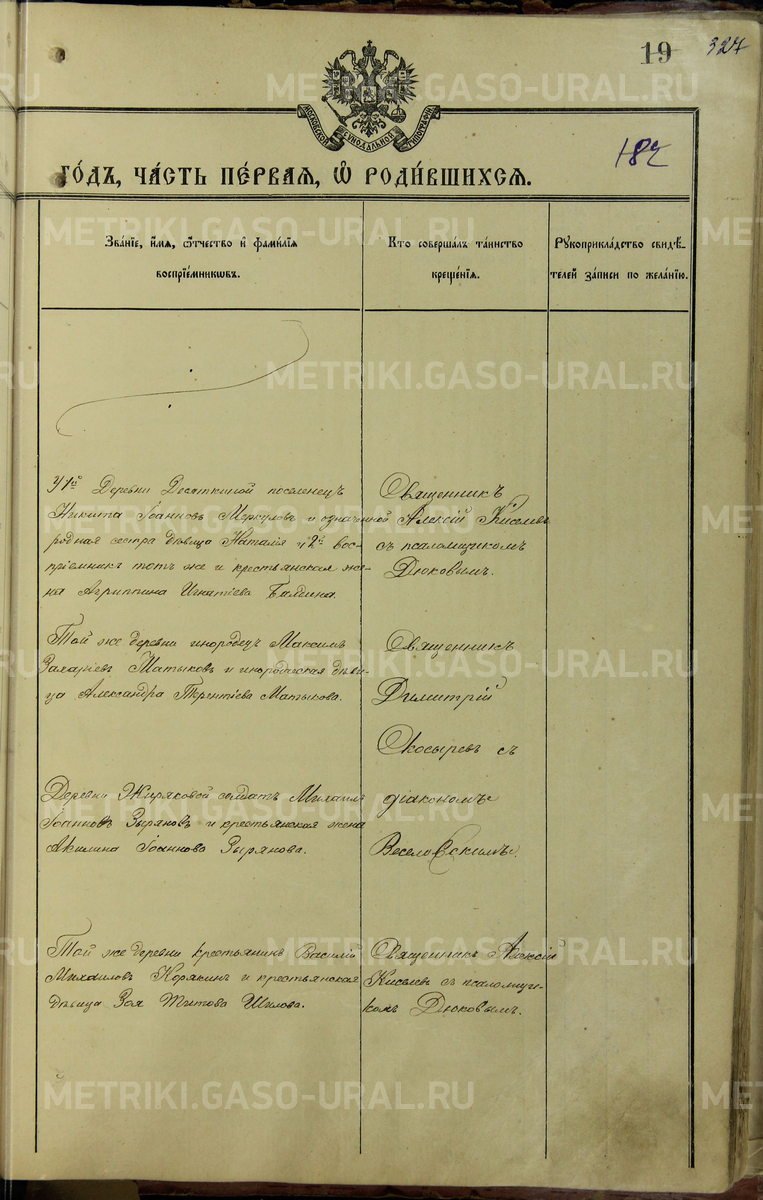 19
327
METRIKI.GASO-URAL.RU
МОСКОВСКОЙ СѴНОДАЛЬНОЙ ТИПОГРАФІИ
182
ГОДЪ, ЧАСТЬ ПЕРВАЯ, Ѿ РОДИВШИХСЯ.
Званіе, имя, ѻтчество и фамилія
воспріемниковъ.
Кто совершалъ таинство
крещенія.
Рукоприкладство свидѣ-
телей записи по желанію.
У 1го Деревни Десяткиной поселенецъ
Никита Іоанновъ Меркуловъ и означенной
родная сестра дѣвица Наталія у 2й вос-
пріемникъ тотъ же и крестьянская же-
на Агриппина Игнатіева
Священникъ
Алексій Киселевъ
съ псаломщикомъ
Дюковымъ.
Той же деревни инородецъ Максимъ
Захаріевъ Матыковъ и инородческая дѣви-
ца Александра Терентіева Матыкова.
Священникъ
Димитрій
Скосыревъ съ
діакономъ
Веселовскимъ.
Деревни Жиряковой солдатъ Михаилъ
Іоанновъ Зыряновъ и крестьянская жена
Акилина Іоаннова Зырянова.
Той же деревни крестьянинъ Василій
Михаиловъ Корякинъ и крестьянская
дѣвица Зоя Титова Шилова.
Священникъ Алексій
Киселевъ съ псаломщи-
комъ Дюковымъ.
METRIKI.GASO-URAL.RU